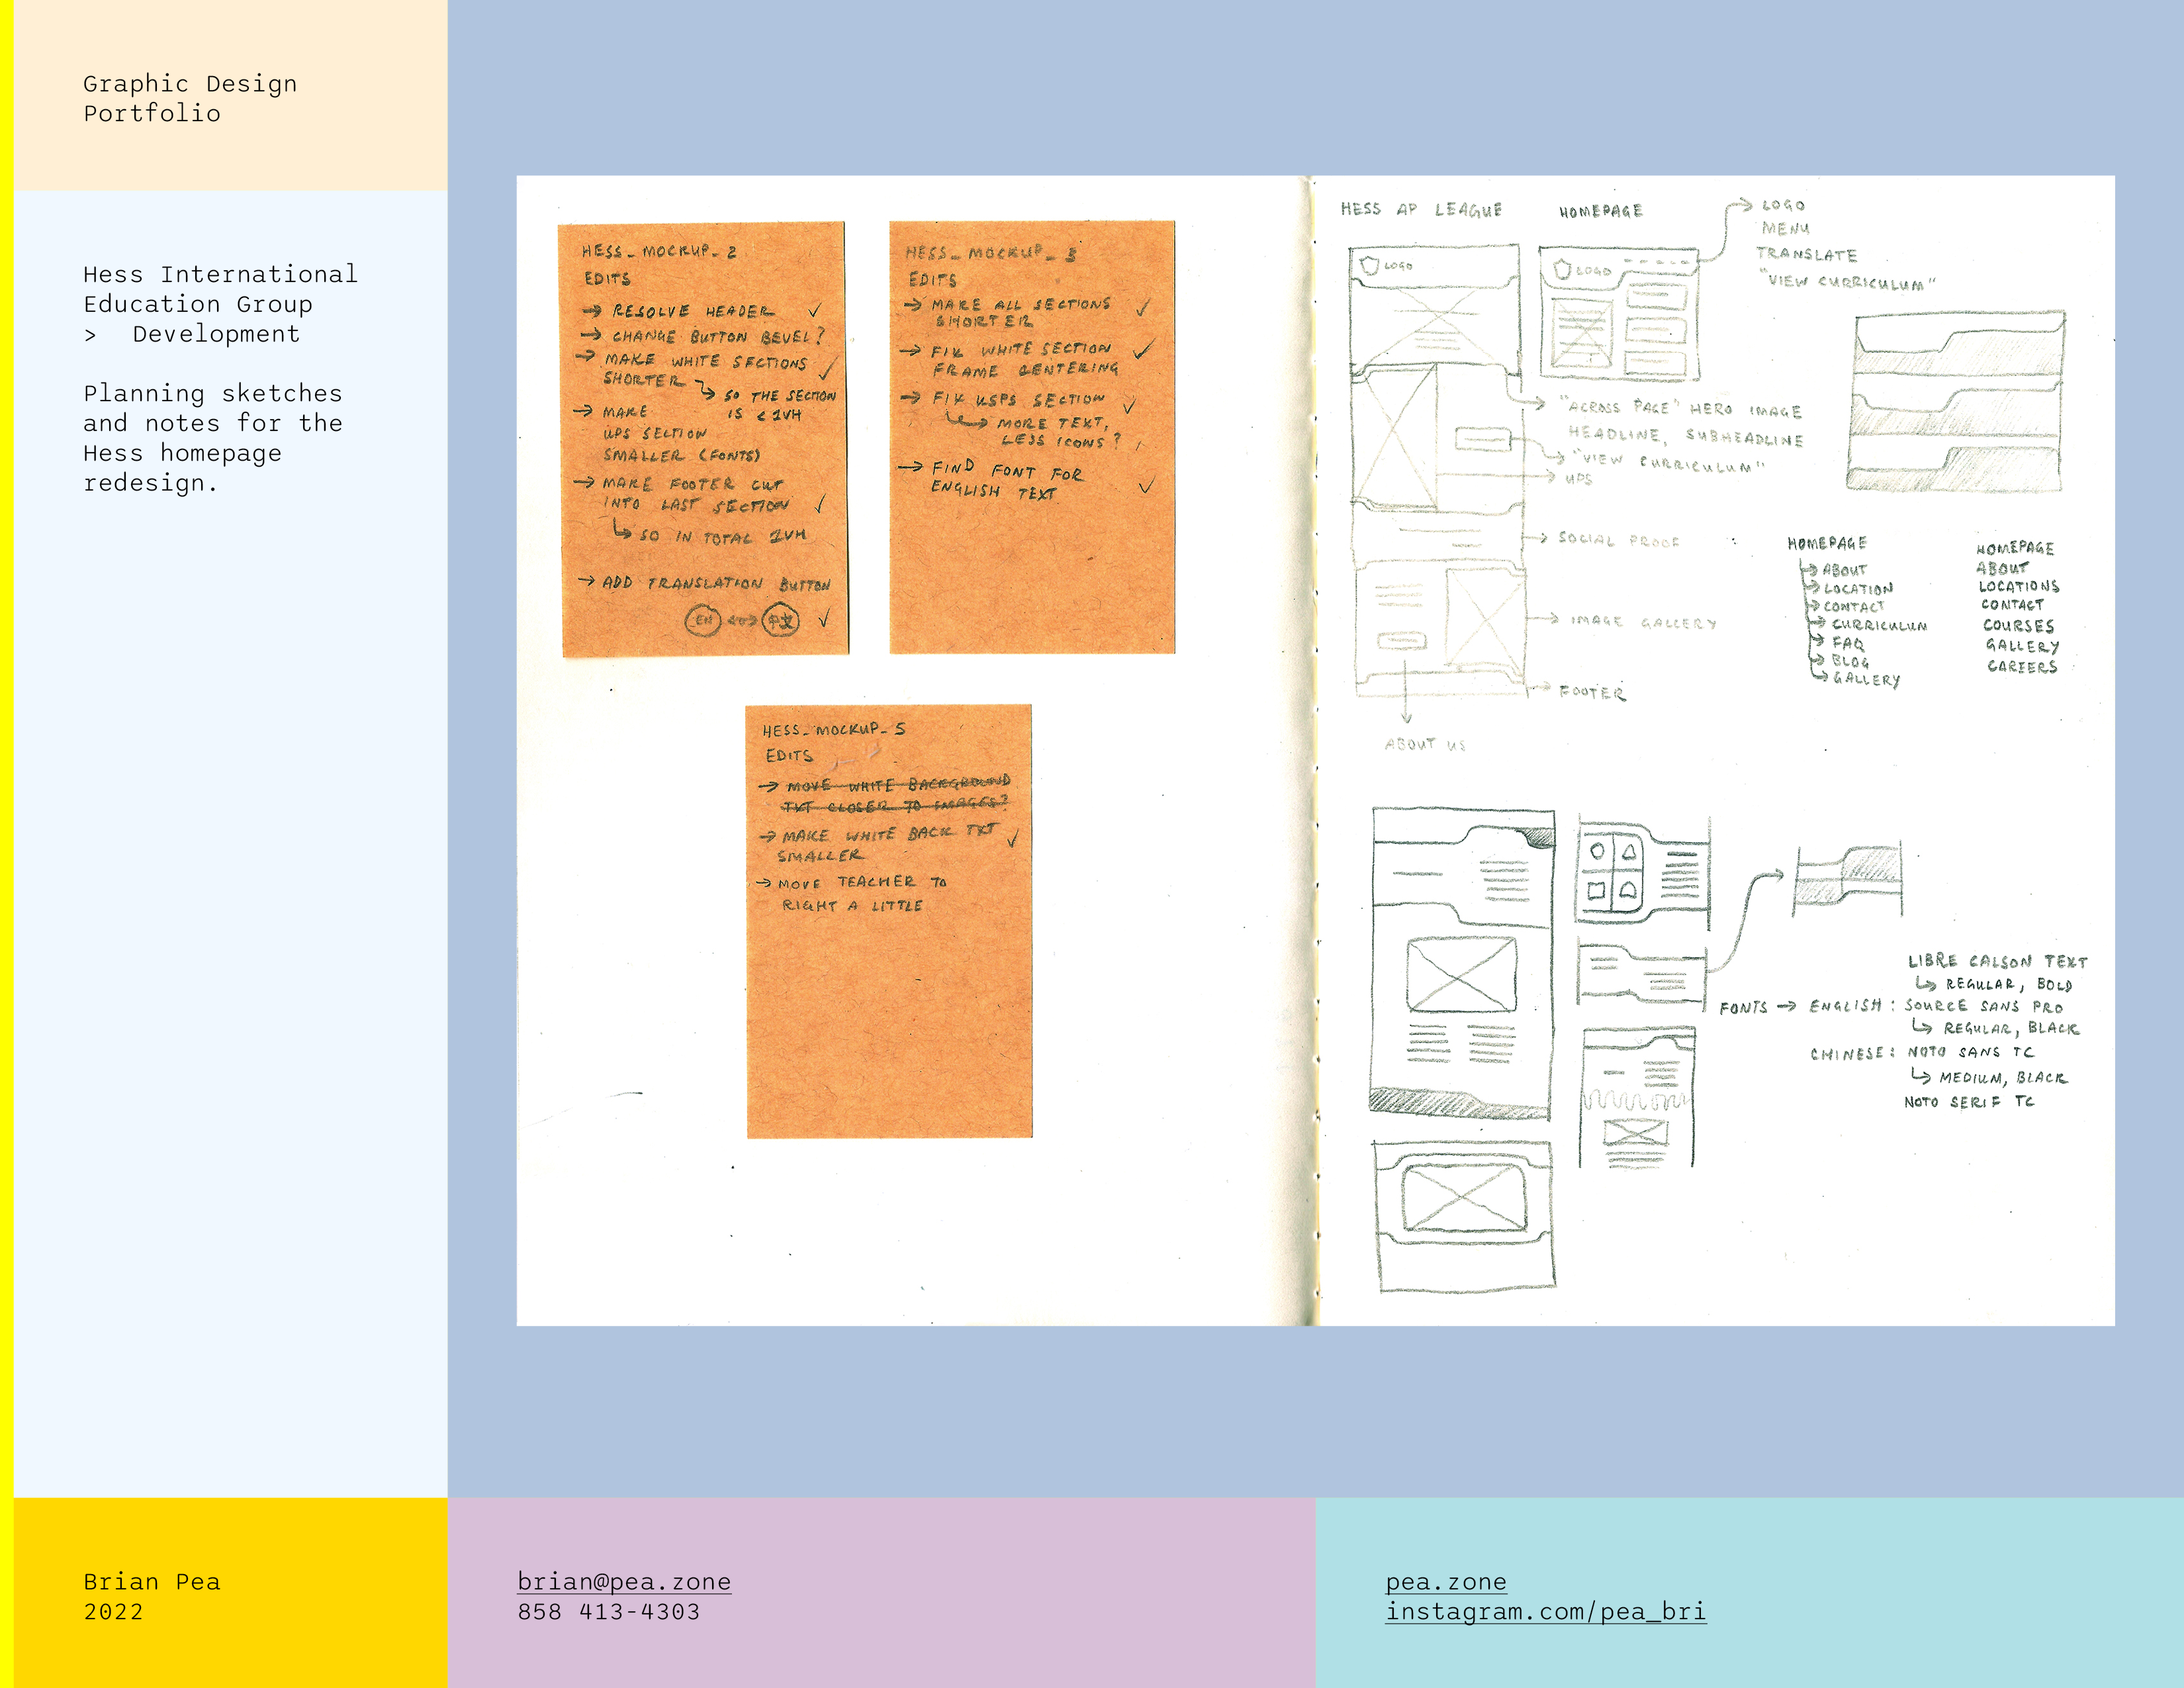 Graphic Design
Portfolio
Hess International
Education Group
> Development
Planning sketches
and notes for the
Hess homepage
redesign.
HESS_MOCKUP_2
EDITS
→ RESOLVE HEADER ✓
→ CHANGE BUTTON BEVEL?
→ MAKE WHITE SECTIONS ✓
SHORTER
↳ SO THE SECTION
IS < 1VH
→ MAKE
UPS SECTION
SMALLER (FONTS)
→ MAKE FOOTER CUT
INTO LAST SECTION ✓
↳ SO IN TOTAL 1VH
→ ADD TRANSLATION BUTTON
EN <-> 中文 ✓
HESS_MOCKUP_3
EDITS
→ MAKE ALL SECTIONS ✓
SHORTER
→ FIX WHITE SECTION ✓
FRAME CENTERING
→ FIX USPS SECTION ✓
↳ MORE TEXT,
LESS ICONS?
→ FIND FONT FOR
ENGLISH TEXT ✓
HESS_MOCKUP_5
EDITS
→ MOVE WHITE BACKGROUND
TXT CLOSER TO IMAGES?
→ MAKE WHITE BACK TXT ✓
SMALLER
→ MOVE TEACHER TO
RIGHT A LITTLE
HESS AP LEAGUE
HOMEPAGE
LOGO
MENU
TRANSLATE
"VIEW CURRICULUM"
LOGO
LOGO
"ACROSS PAGE" HERO IMAGE
HEADLINE, SUBHEADLINE
"VIEW CURRICULUM"
UPS
SOCIAL PROOF
IMAGE GALLERY
FOOTER
ABOUT US
HOMEPAGE
ABOUT
LOCATION
CONTACT
CURRICULUM
FAQ
BLOG
GALLERY
HOMEPAGE
ABOUT
LOCATIONS
CONTACT
COURSES
GALLERY
CAREERS
LIBRE CALSON TEXT
↳ REGULAR, BOLD
FONTS → ENGLISH: SOURCE SANS PRO
↳ REGULAR, BLACK
CHINESE: NOTO SANS TC
↳ MEDIUM, BLACK
NOTO SERIF TC
Brian Pea
2022
brian@pea.zone
858 413-4303
pea.zone
instagram.com/pea_bri